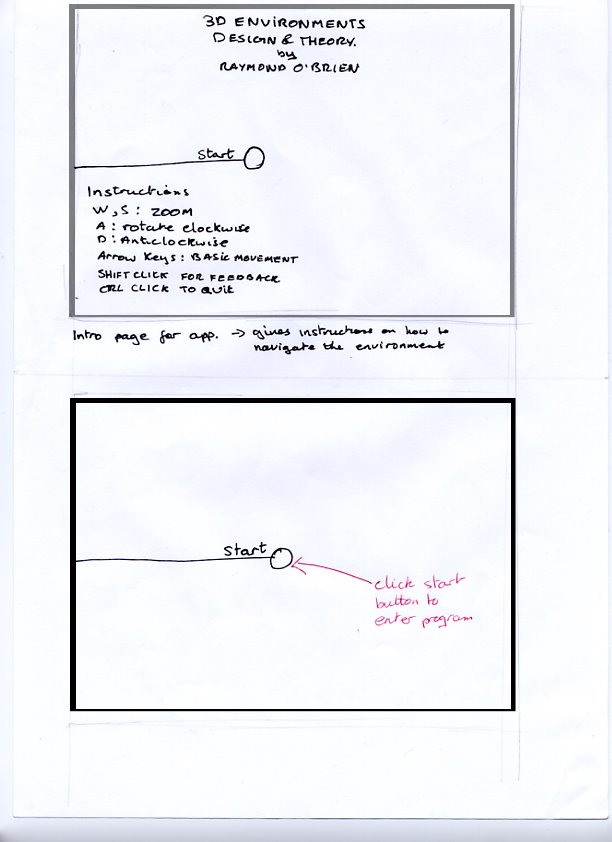 3D ENVIRONMENTS
DESIGN & THEORY.
by
RAYMOND O'BRIEN
Start
Instructions
W,S : ZOOM
A : rotate clockwise
D : Anticlockwise
Arrow Keys : BASIC MOVEMENT
SHIFT CLICK FOR FEEDBACK
CRL CLICK TO QUIT
Intro page for app. → gives instructions on how to
navigate the environment
Start
click start
button to
enter program